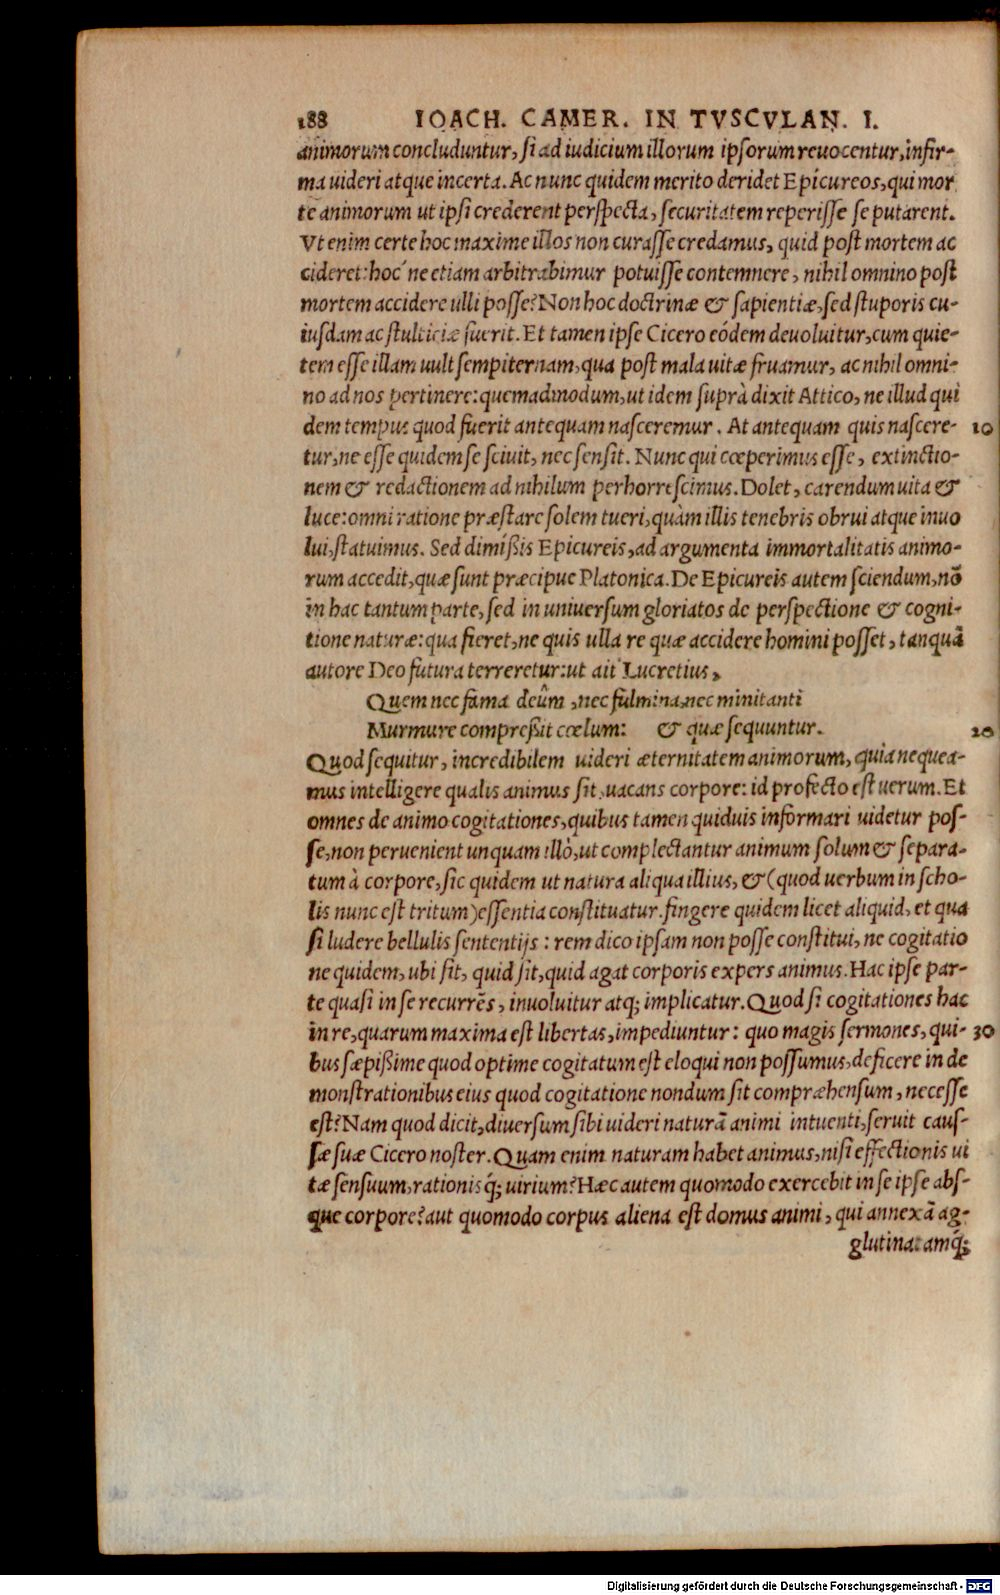 188 IOACH. CAMER. IN TVSCVLAN. I.
animorum concluduntur, si ad iudicium illorum ipsorum reuocentur, infir-
ma uideri atque incerta. Ac nunc quidem merito deridet Epicureos, qui mor
tē animorum ut ipsi crederent perspecta, securitatem reperisse se putarent.
Vt enim certe hoc maxime illos non curasse credamus, quid post mortem ac
cideret: hoc´ne etiam arbitrabimur potuisse contemnere, nihil omnino post
mortem accidere ulli posse? Non hoc doctrinæ & sapientiæ, sed stuporis cu-
iusdam ac stulticiæ fuerit. Et tamen ipse Cicero eódem deuoluitur, cum quie-
tem esse illam uult sempiternam, qua post mala uitæ fruamur, ac nihil omni-
no ad nos pertinere: quemadmodum, ut idem suprà dixit Attico, ne illud qui
dem tempus quod fuerit antequam nasceremur. At antequam quis nascere- 10
tur, ne esse quidem se sciuit, nec sensit. Nunc qui cœperimus esse, extinctio-
nem & redactionem ad nihilum perhorrescimus. Dolet, carendum uita &
luce: omni ratione præstare solem tueri, quàm illis tenebris obrui atque inuo
lui, statuimus. Sed dimißis Epicureis, ad argumenta immortalitatis animo-
rum accedit, quæ sunt præcipue Platonica. De Epicureis autem sciendum, nō
in hac tantum parte, sed in uniuersum gloriatos de perspectione & cogni-
tione naturæ: qua fieret, ne quis ulla re quæ accidere homini posset, tanquā
autore Deo futura terreretur: ut ait Lucretius,
Quem nec fama deûm, nec fulmina, nec minitanti
Murmure compreßit cœlum: & quæ sequuntur. 20
Quod sequitur, incredibilem uideri æternitatem animorum, quia nequea-
mus intelligere qualis animus sit, uacans corpore: id profecto est uerum. Et
omnes de animo cogitationes, quibus tamen quiduis informari uidetur pos-
se, non peruenient unquam illò, ut complectantur animum solum & separa-
tum à corpore, sic quidem ut natura aliqua illius, & (quod uerbum in scho-
lis nunc est tritum) essentia constituatur. fingere quidem licet aliquid, et qua
si ludere bellulis sententijs: rem dico ipsam non posse constitui, ne cogitatio
ne quidem, ubi sit, quid sit, quid agat corporis expers animus. Hac ipse par-
te quasi in se recurrēs, inuoluitur atq; implicatur. Quod si cogitationes hac
in re, quarum maxima est libertas, impediuntur: quo magis sermones, qui- 30
bus sæpißime quod optime cogitatum est eloqui non possumus, deficere in de
monstrationibus eius quod cogitatione nondum sit compræhensum, necesse
est? Nam quod dicit, diuersum sibi uideri naturā animi intuenti, seruit caus-
sæ suæ Cicero noster. Quam enim naturam habet animus, nisi effectionis ui
tæ sensuum, rationis q́; uirium? Hæc autem quomodo exercebit in se ipse abs-
que corpore? aut quomodo corpus aliena est domus animi, qui annexā ag-
glutinatamq́;
Digitalisierung gefördert durch die Deutsche Forschungsgemeinschaft - DFG